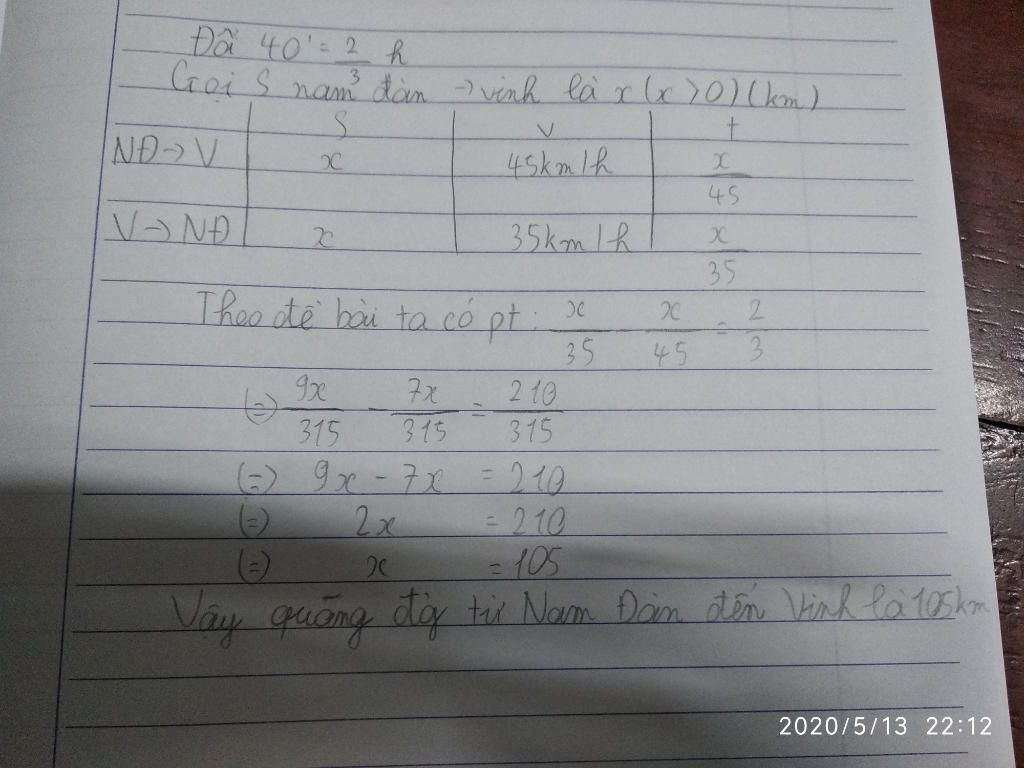 Đổi 40' = 2/3 h
Gọi S nam đàn → vinh là x (x > 0) (km)
S v t
NĐ → V x 45km/h x/45
V → NĐ x 35km/h x/35
Theo đề bài ta có pt: x/35 - x/45 = 2/3
(=) 9x/315 - 7x/315 = 210/315
(=) 9x - 7x = 210
(=) 2x = 210
(=) x = 105
Vậy quãng đg từ Nam Đàn đến Vinh là 105km
2020/5/13 22:12